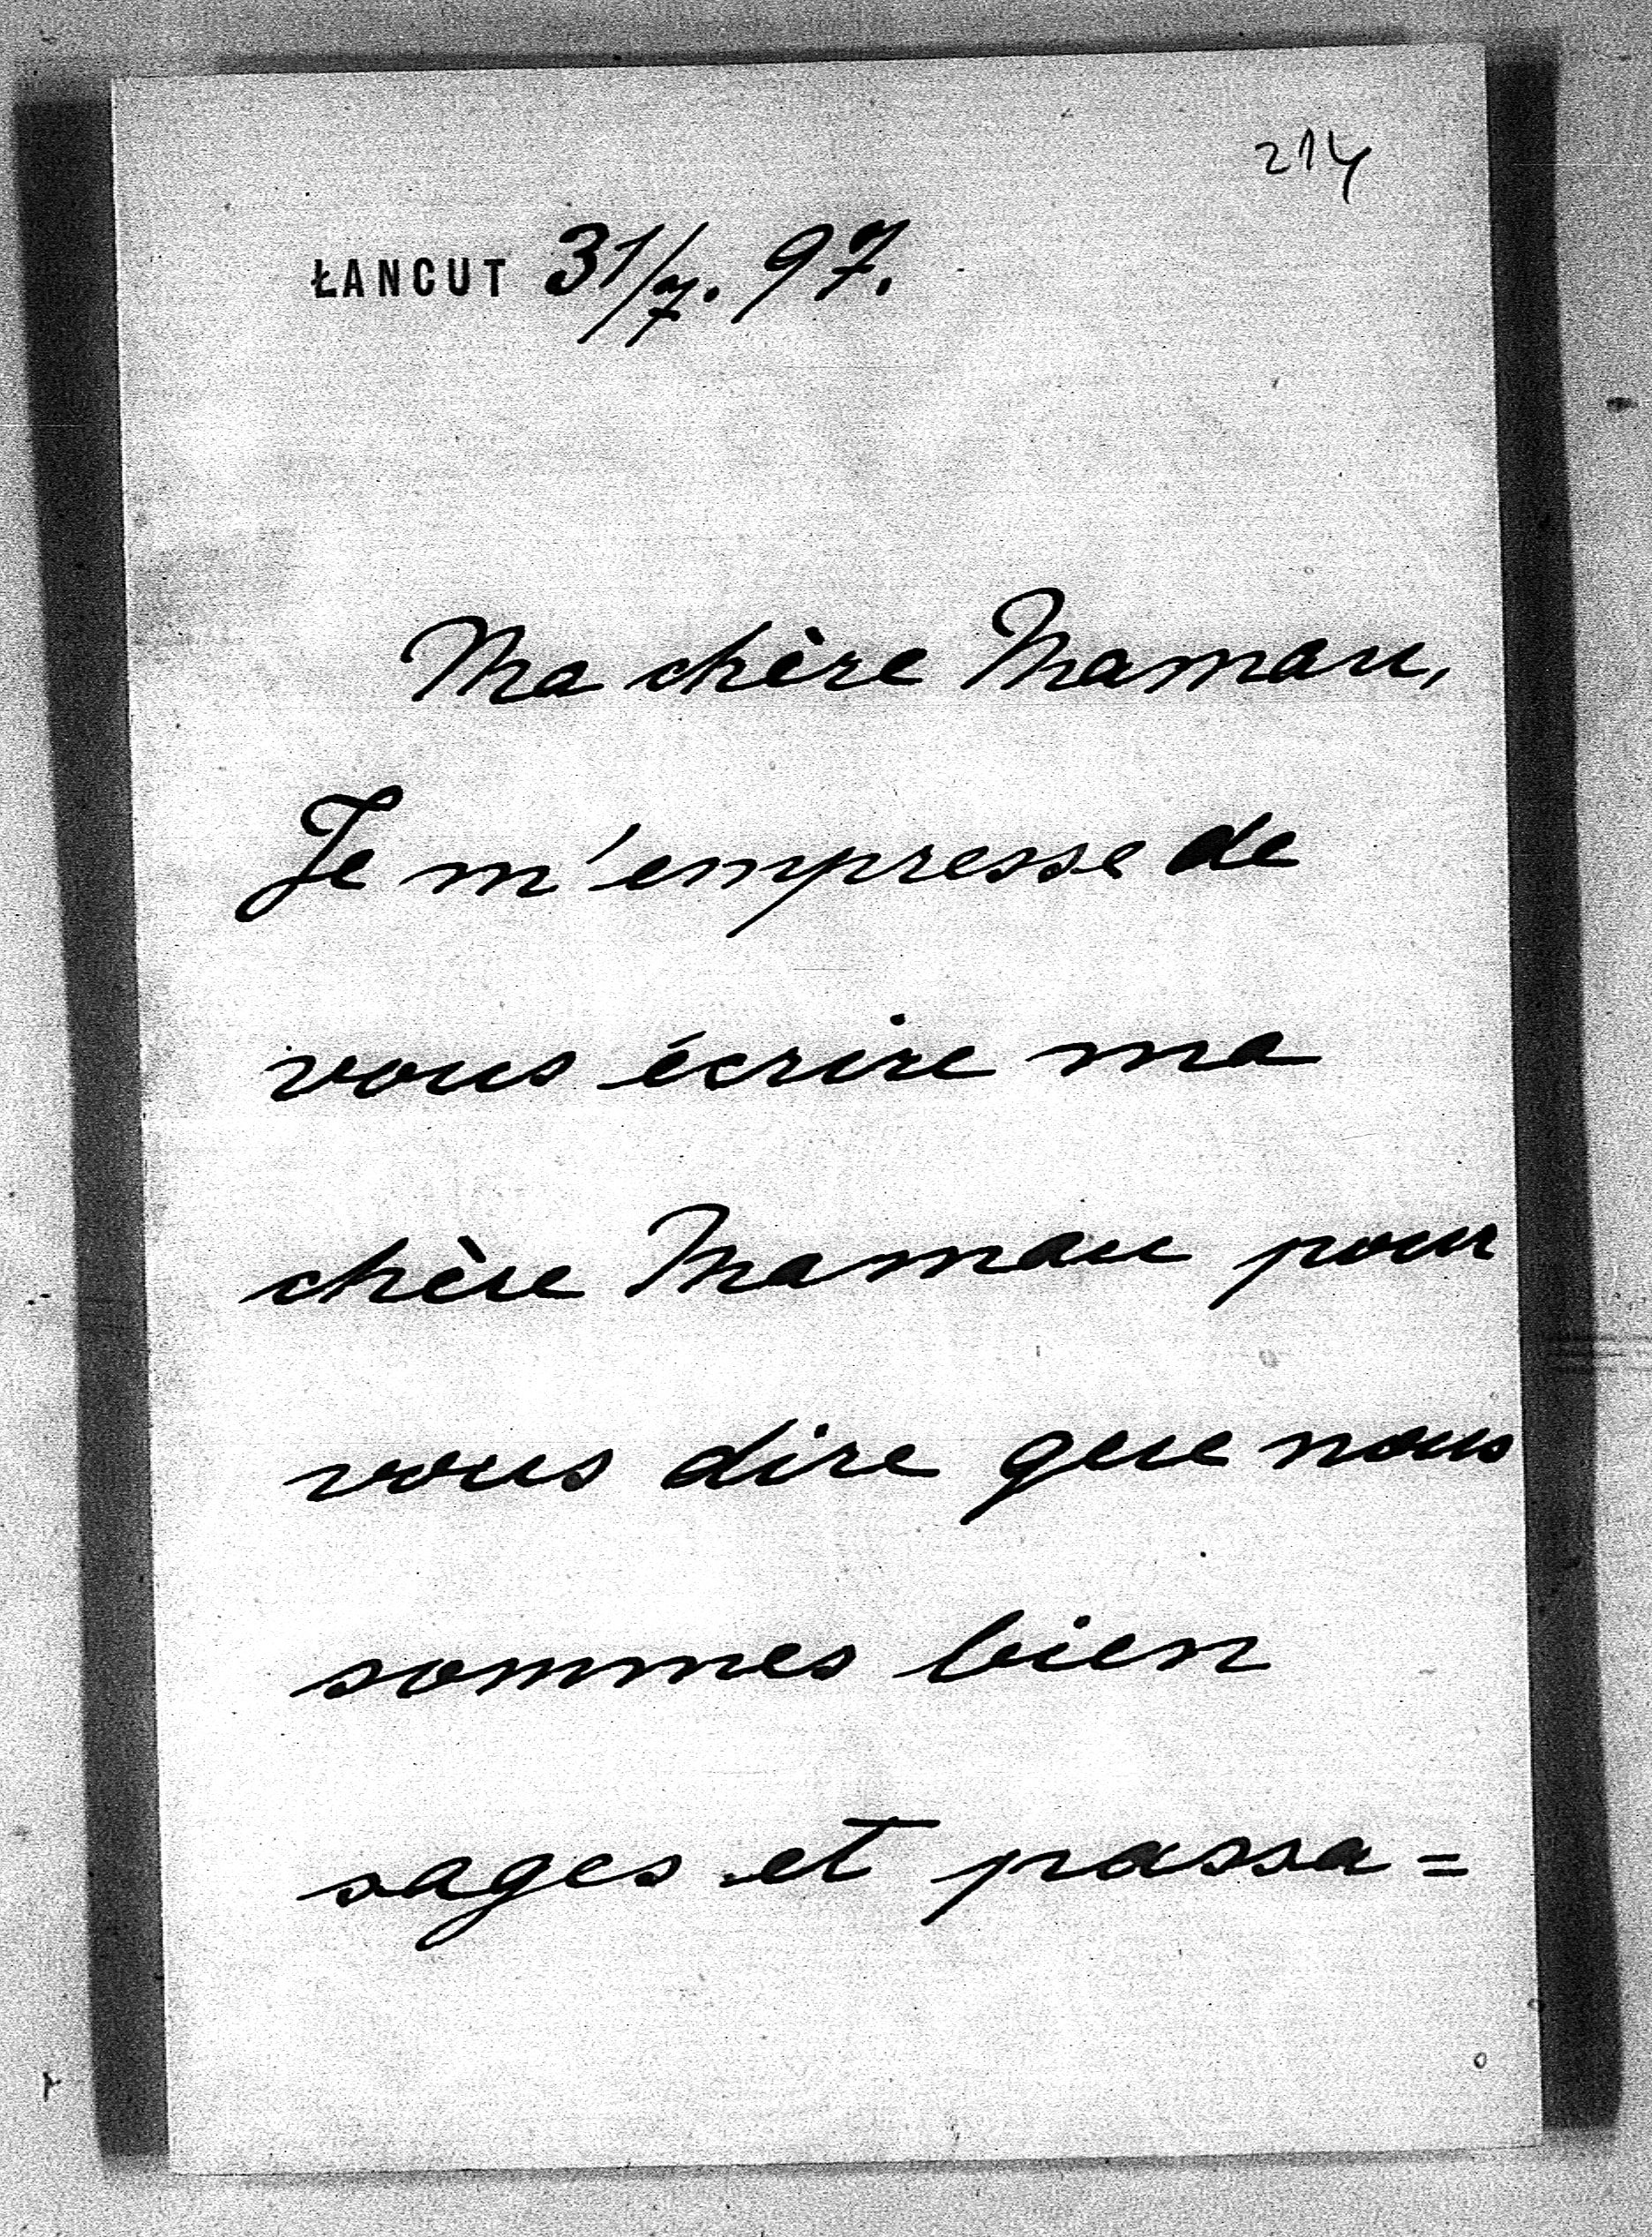 214
ŁANCUT 31/7. 97.
Ma chère Maman,
Je m'empresse de
vous écrire ma
chère Maman pour
vous dire que nous
sommes bien
sages et passa=